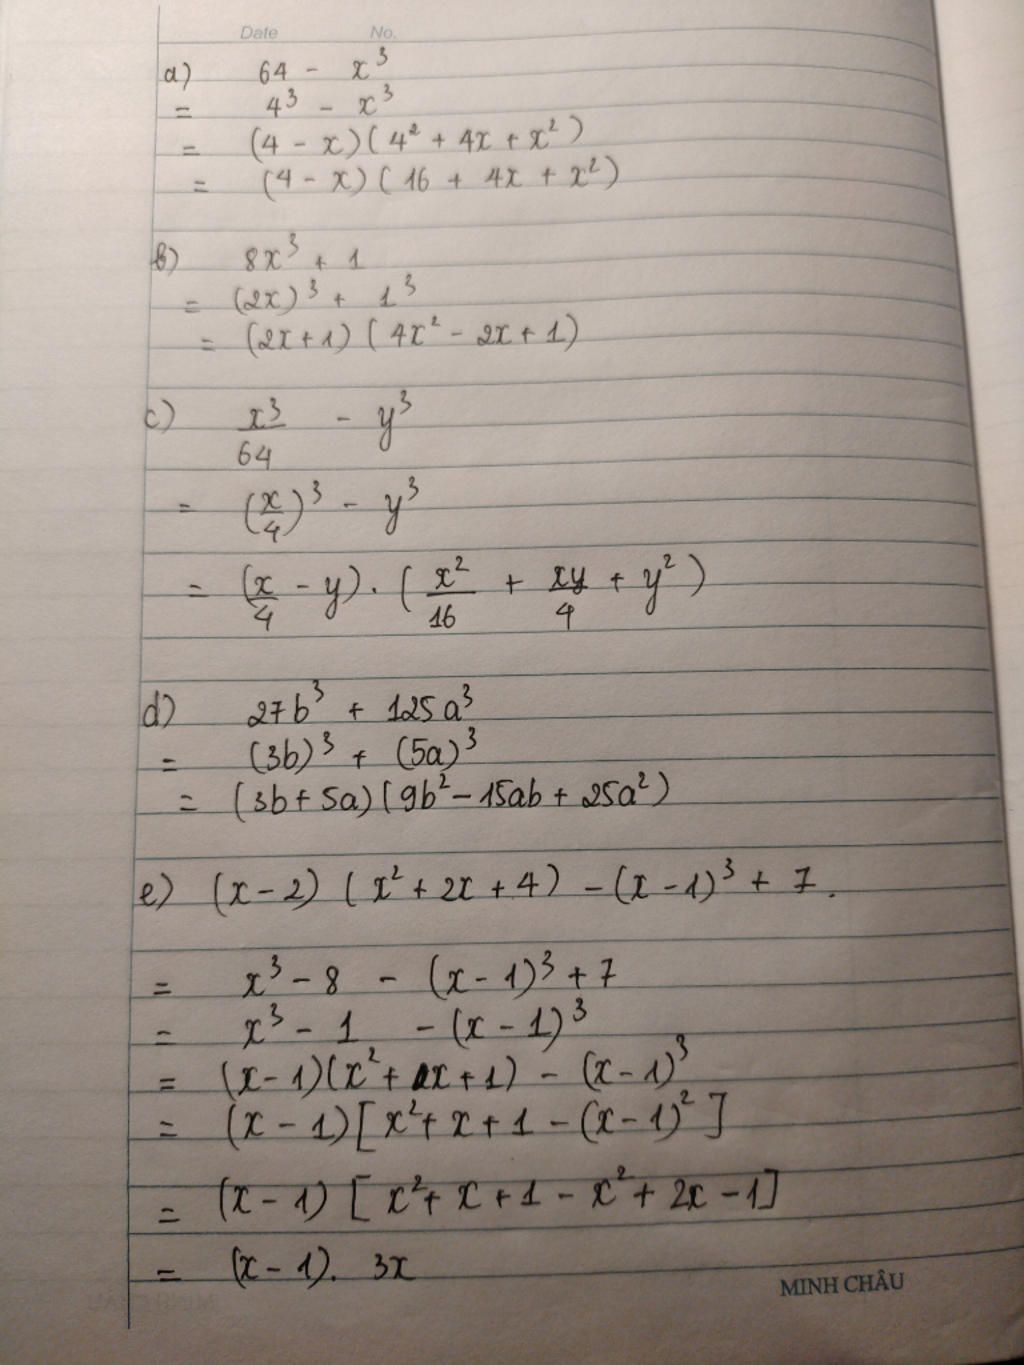 Date No.
a) 64 - x³
= 4³ - x³
= (4 - x)(4² + 4x + x²)
= (4 - x)(16 + 4x + x²)
b) 8x³ + 1
= (2x)³ + 1³
= (2x+1)(4x² - 2x + 1)
c) x³/64 - y³
= (x/4)³ - y³
= (x/4 - y) . (x²/16 + xy/4 + y²)
d) 27b³ + 125a³
= (3b)³ + (5a)³
= (3b+5a)(9b² - 15ab + 25a²)
e) (x-2)(x² + 2x + 4) - (x-1)³ + 7.
= x³ - 8 - (x-1)³ + 7
= x³ - 1 - (x-1)³
= (x-1)(x² + x + 1) - (x-1)³
= (x-1)[x² + x + 1 - (x-1)²]
= (x-1)[x² + x + 1 - x² + 2x - 1]
= (x-1). 3x
MINH CHÂU